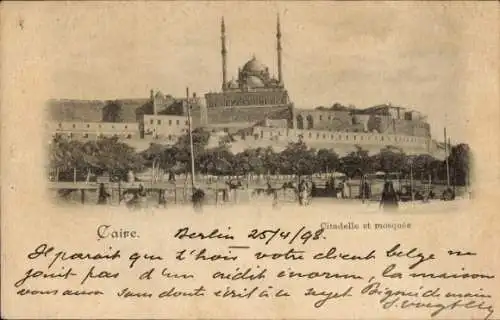 Caire.
Citadelle et mosquée
Berlin 25/4/98.
Il parait que votre client belge ne
joint pas d'un crédit énorme, la maison
vous aura sans doute écrit à ce sujet